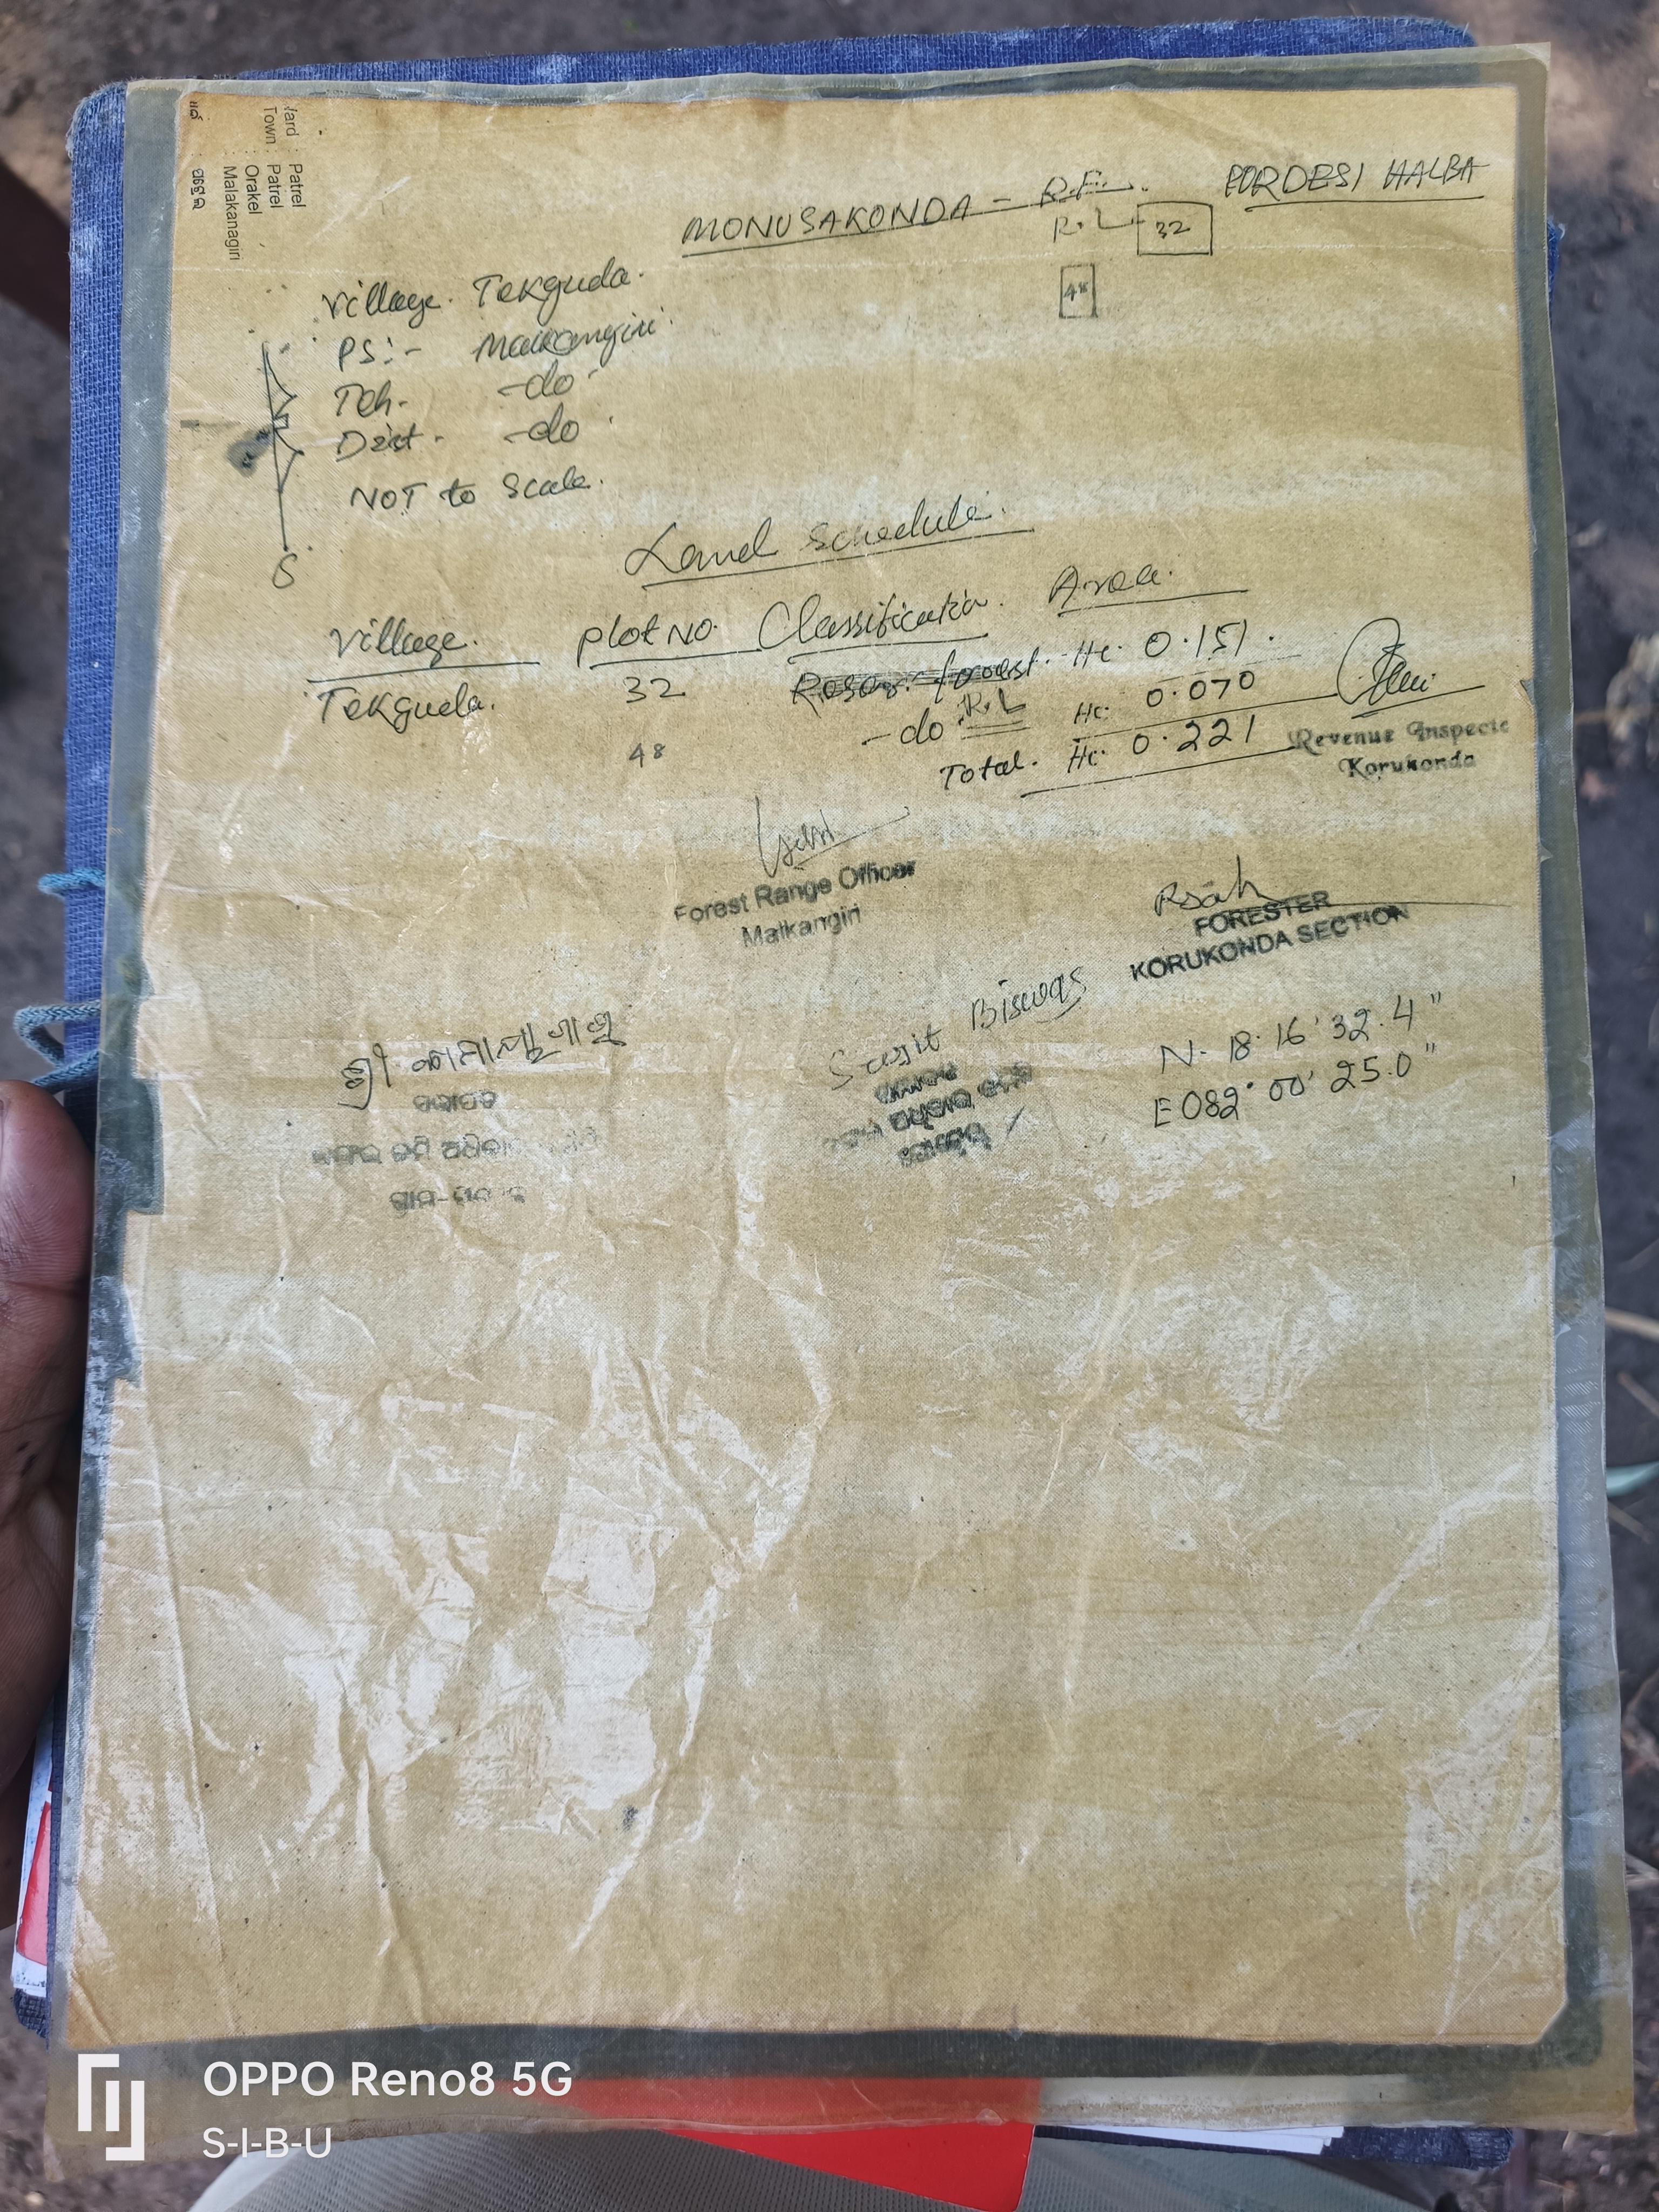 Ward : Patrel
Town : Patrel
Orakel
: Malakanagiri
PORDESI HALBA
MONUSAKONDA - R.F.
R.L 32
48
Village. Tekguda.
PS:- Malkangiri.
Teh. -do-
Dist. -do
NOT to Scale.
S
Land Schedule.
Village. Plot NO. Classification. Area.
Tekguda. 32 forest. Hc. 0.151.
48 -do R.L Hc. 0.070
Total. Hc. 0.221
Revenue Inspecto
Korukonda
Forest Range Officer
Malkangiri
FORESTER
KORUKONDA SECTION
Biswas
N. 18. 16' 32.4"
E 082° 00' 25.0"
OPPO Reno8 5G
S-I-B-U